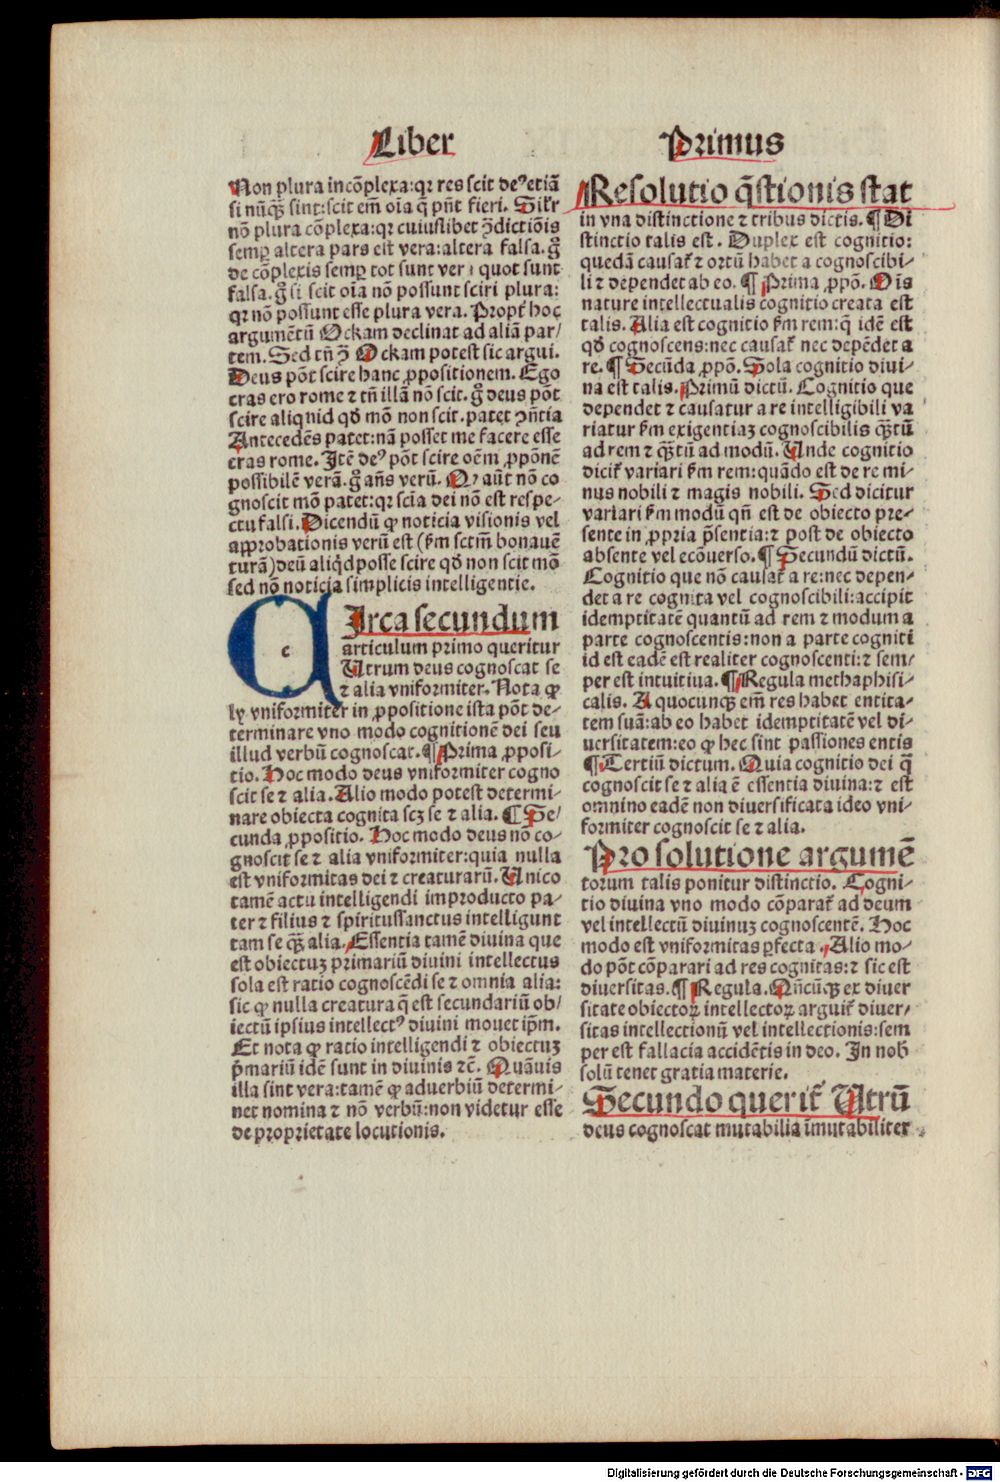 Liber Primus
Non plura incōplexa:qꝛ res scit deꝰ etiā
si nūqꝫ sint:scit em̄ oīa q̄ pn̄t fieri. Silr̄
nō plura cōplexa:qꝛ cuiuslibet ↄ̄dictiōis
semꝑ altera pars eīt vera:altera falsa.gͦ
de cōplexis semꝑ tot sunt vera quot sunt
falsa.gͦ si scit oīa nō possunt sciri plura:
qꝛ nō possunt esse plura vera. Propt̄ hoc
argumētū Ockam declinat ad aliā par/
tem. Sed tn̄ ↄ̄ Ockam potest sic argui.
Deus pōt scire hanc ꝓpositionem. Ego
cras ero rome ⁊ tn̄ illā nō scit. gͦ deus pōt
scire aliquid qd̄ mō non scit. patet ↄn̄tia
Antecedēs patet:nā posset me facere esse
cras rome. Itē deꝰ pōt scire oēm ꝓpōnē
possibilē verā. gͦ an̄s verū. Ꝙ aūt nō co
gnoscit mō patet:qꝛ scīa dei nō est respe⸗
ctu falsi. Dicendū ꝙ noticia visionis vel
approbationis verū est (s̄m sctm̄ bonauē
turā)deū aliqd̄ posse scire qd̄ non scit mō
sed nō noticia simplicis intelligentie.
c
CIrca secundum
articulum primo queritur
Utrum deus cognoscat se
⁊ alia vniformiter. Nota ꝙ
ly vniformiter in ꝓpositione ista pōt de⸗
terminare vno modo cognitionē dei seu
illud verbū cognoscat. ¶ Prima ꝓposi⸗
tio. Hoc modo deus vniformiter cogno
scit se ⁊ alia. Alio modo potest determi⸗
nare obiecta cognita scꝫ se ⁊ alia. ¶ Se/
cunda ꝓpositio. Hoc modo deus nō co⸗
gnoscit se ⁊ alia vniformiter:quia nulla
est vniformitas dei ⁊ creaturarū. Unico
tamē actu intelligendi improducto pa⸗
ter ⁊ filius ⁊ spiritussanctus intelligunt
tam se qꝫ̄ alia. Essentia tamē diuina que
est obiectuꝫ primariū diuini intellectus
sola est ratio cognoscēdi se ⁊ omnia alia:
sic ꝙ nulla creatura q̄ est secundariū ob/
iectū ipsius intellectꝰ diuini mouet ip̄m.
Et nota ꝙ ratio intelligendi ⁊ obiectuꝫ
p̄mariū idē sunt in diuinis ⁊c̄. Quāuis
illa sint vera:tamē ꝙ aduerbiū determi⸗
net nomina ⁊ nō verbū:non videtur esse
de proprietate locutionis.
Resolutio q̄stionis stat
in vna distinctione ⁊ tribus dictis. ¶ Di
stinctio talis est. Duplex est cognitio:
quedā causat̄ ⁊ ortū habet a cognoscibi⸗
li ⁊ dependet ab eo. ¶ Prima ꝓpō. Oīs
nature intellectualis cognitio creata est
talis. Alia est cognitio s̄m rem:q̄ idē est
qd̄ cognoscens:nec causat̄ nec depēdet a
re. ¶ Secūda ꝓpō. Sola cognitio diui⸗
na est talis. Primū dictū. Cognitio que
dependet ⁊ causatur a re intelligibili va
riatur s̄m exigentiaꝫ cognoscibilis qꝫ̄tū
ad rem ⁊ qꝫ̄tū ad modū. Unde cognitio
dicit̄ variari s̄m rem:quādo est de re mi⸗
nus nobili ⁊ magis nobili. Sed dicitur
variari s̄m modū qn̄ est de obiecto pre⸗
sente in ꝓpria p̄sentia:⁊ post de obiecto
absente vel ecōuerso. ¶ Secundū dictū.
Cognitio que nō causat̄ a re:nec depen⸗
det a re cognita vel cognoscibili:accipit
idemptitatē quantū ad rem ⁊ modum a
parte cognoscentis:non a parte cogniti
id est eadē est realiter cognoscenti:⁊ sem⸗
per est intuitiua. ¶ Regula methaphisi⸗
calis. A quocunqꝫ em̄ res habet entita⸗
tem suā:ab eo habet idemptitatē vel di⸗
uersitatem:eo ꝙ hec sint passiones entis
¶ Tertiū dictum. Quia cognitio dei q̄
cognoscit se ⁊ alia ē essentia diuina:⁊ est
omnino eadē non diuersificata ideo vni⸗
formiter cognoscit se ⁊ alia.
Pro solutione argumē
torum talis ponitur distinctio. Cogni⸗
tio diuina vno modo cōparat̄ ad deum
vel intellectū diuinuꝫ cognoscentē. Hoc
modo est vniformitas ꝑfecta. Alio mo⸗
do pōt cōparari ad res cognitas:⁊ sic est
diuersitas. ¶ Regula. Qn̄cūqꝫ ex diuer
sitate obiectoꝝ intellectoꝝ arguit̄ diuer⸗
sitas intellectionū vel intellectionis:sem
per est fallacia accidētis in deo. In nob̄
solū tenet gratia materie.
Secundo querit̄ Utrū
deus cognoscat mutabilia īmutabiliter
Digitalisierung gefördert durch die Deutsche Forschungsgemeinschaft - DFG